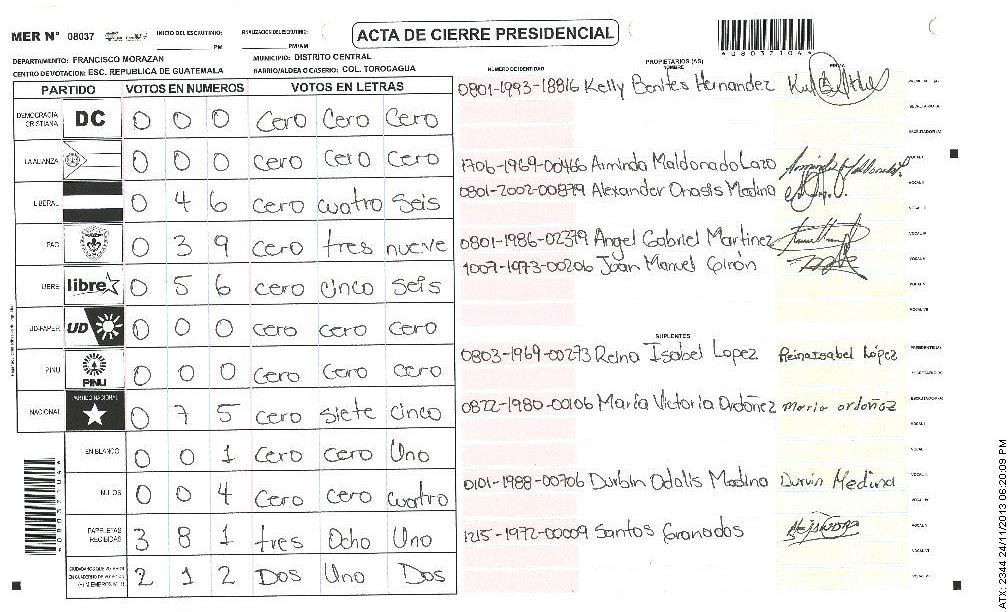 MER N° 08037
INICIO DEL ESCRUTINIO: PM
FINALIZACION DEL ESCRUTINIO: PM/AM
ACTA DE CIERRE PRESIDENCIAL
DEPARTAMENTO: FRANCISCO MORAZAN
MUNICIPIO: DISTRITO CENTRAL
CENTRO DE VOTACION: ESC. REPUBLICA DE GUATEMALA
BARRIO/ALDEA O CASERIO: COL. TOROCAGUA
PARTIDO VOTOS EN NUMEROS VOTOS EN LETRAS
DEMOCRACIA CRISTIANA DC 0 0 0 Cero Cero Cero
LA ALIANZA 0 0 0 Cero Cero Cero
LIBERAL 0 4 6 Cero Cuatro Seis
PAC 0 3 9 Cero tres nueve
LIBRE libre 0 5 6 Cero Cinco Seis
UD-FAPER UD 0 0 0 Cero Cero Cero
PINU PINU 0 0 0 Cero Cero Cero
NACIONAL PARTIDO NACIONAL 0 7 5 Cero Siete Cinco
EN BLANCO 0 0 1 Cero Cero Uno
NULOS 0 0 4 Cero Cero Cuatro
PAPELETAS RECIBIDAS 3 8 1 tres Ocho Uno
2 1 2 Dos Uno Dos
NUMERO DE IDENTIDAD PROPIETARIOS (AS) NOMBRE FIRMA
0801-1993-18816 Kelly Benites Hernandez
1706-1969-00466 Arminda Maldonado Lazo
0801-2002-00879 Alexander Onasis Medina
0801-1986-02379 Angel Gabriel Martinez
1007-1973-00206 Juan Manuel Girón
SUPLENTES
0803-1969-00273 Reina Isabel Lopez Reina Isabel López
0822-1980-00106 María Victoria Ordóñez Maria Ordoñez
0101-1988-00706 Durbin Odalis Medina Durvin Medina
1215-1972-00009 Santos Granados
ATX: 2344 24/11/2013 06:20:09 PM